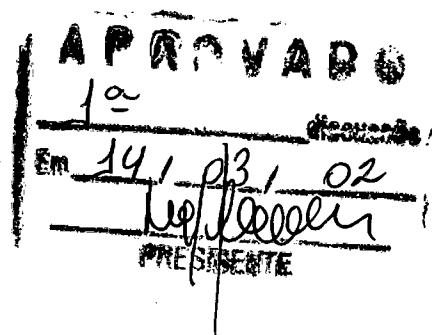 APROVADO
1ª discussão
Em 14 / 03 / 02
PRESIDENTE